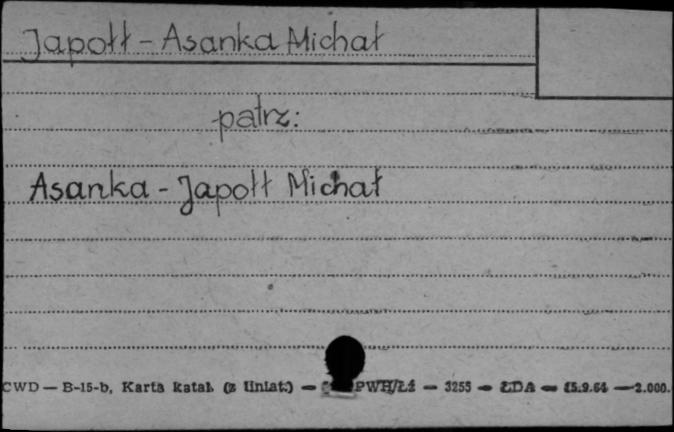 Japołł - Asanka Michał
patrz:
Asanka - Japołł Michał
CWD — B-15-b, Karta katal. (z liniat.) — PWH/Łź — 3255 — ŁDA — 15.9.64 — 2.000.